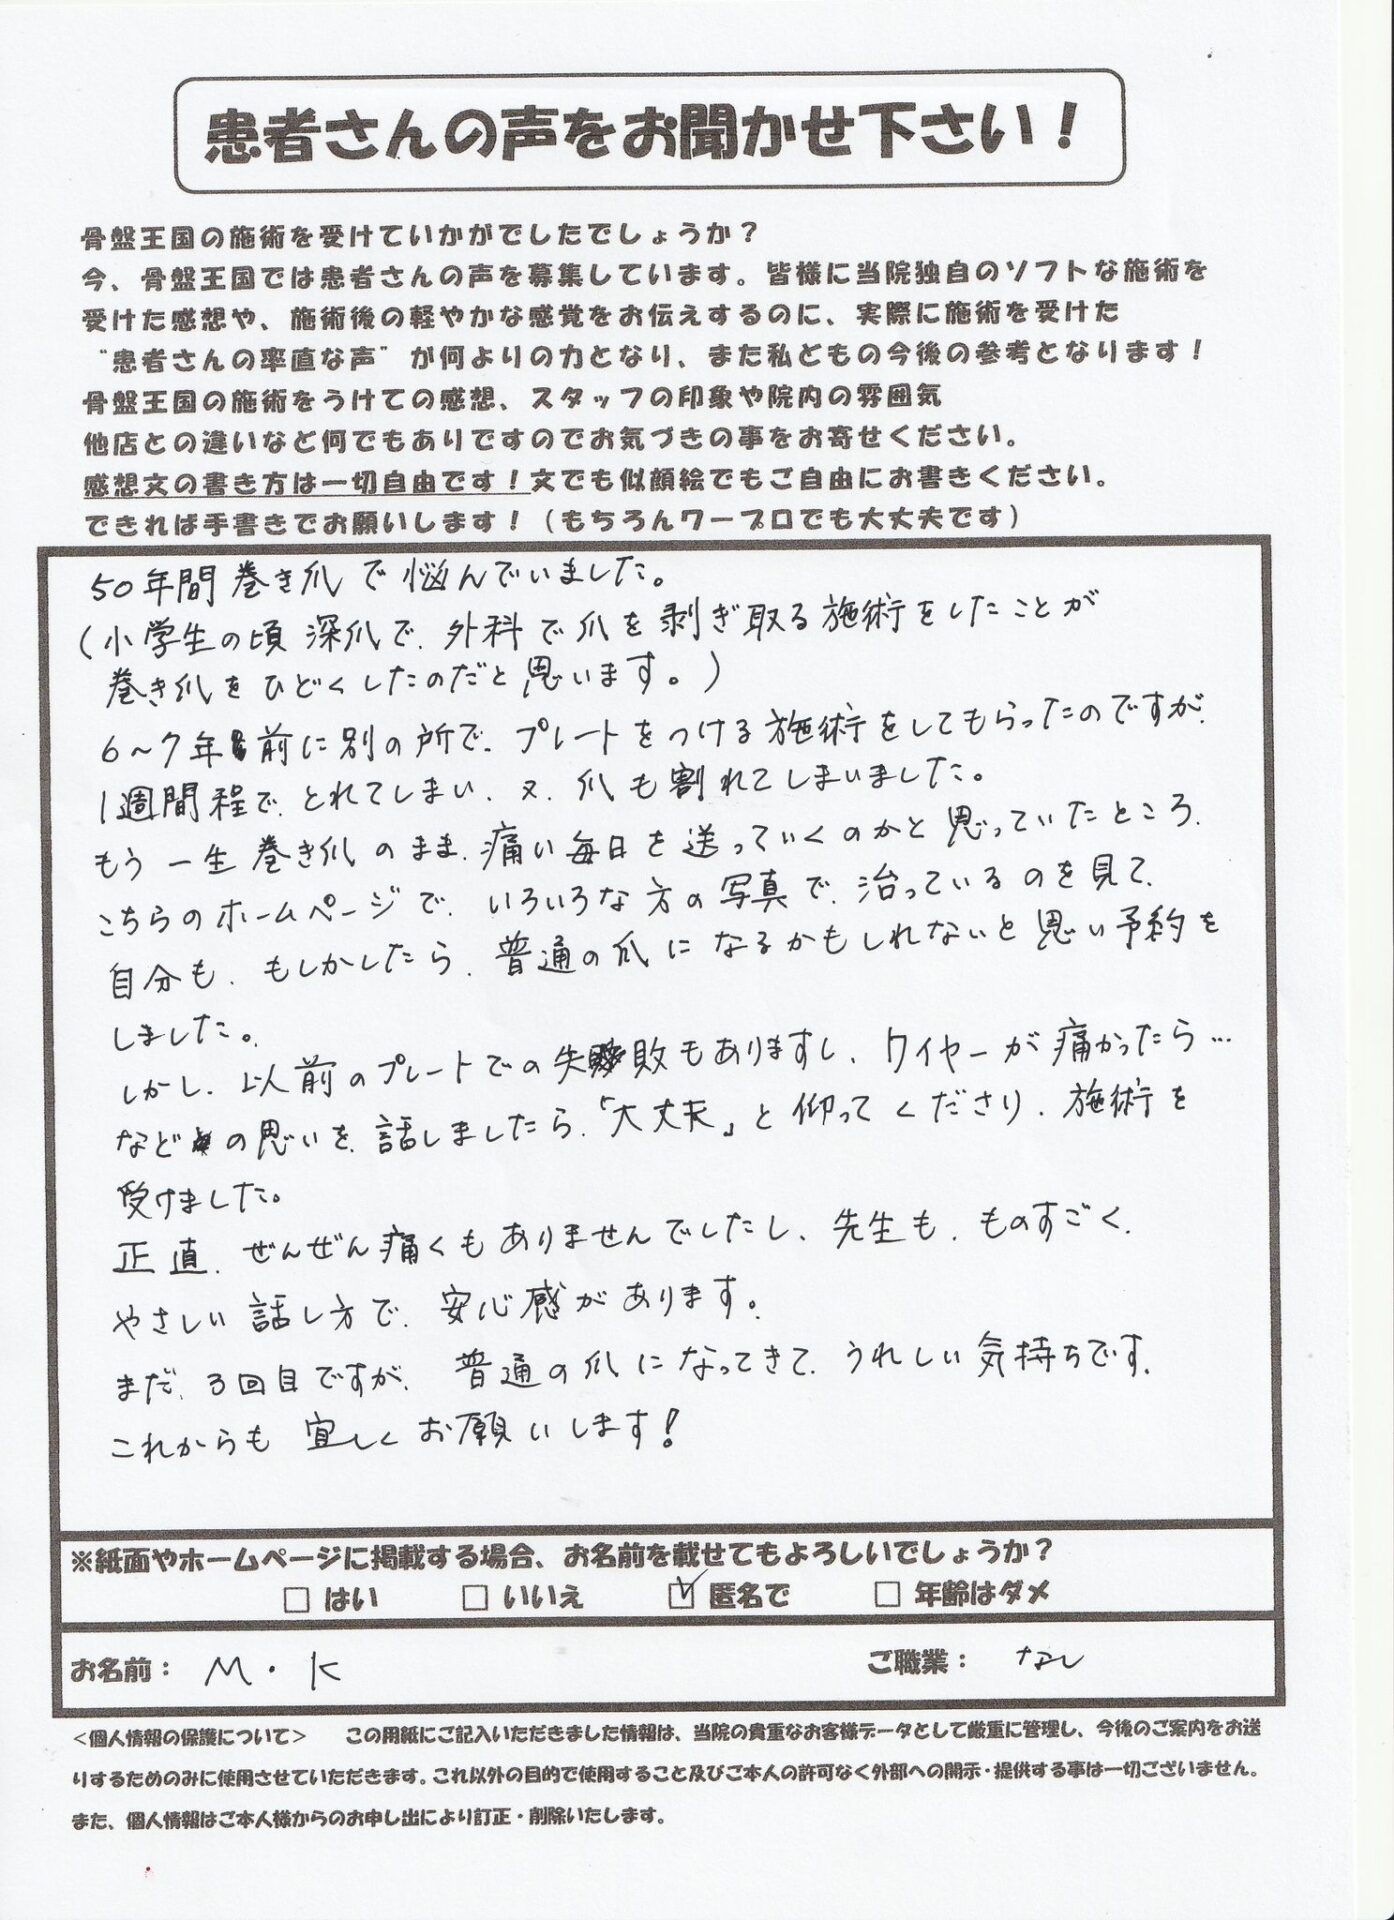 患者さんの声をお聞かせ下さい！
骨盤王国の施術を受けていかがでしたでしょうか？
今、骨盤王国では患者さんの声を募集しています。皆様に当院独自のソフトな施術を
受けた感想や、施術後の軽やかな感覚をお伝えするのに、実際に施術を受けた
“患者さんの率直な声”が何よりの力となり、また私どもの今後の参考となります！
骨盤王国の施術をうけての感想、スタッフの印象や院内の雰囲気
他店との違いなど何でもありですのでお気づきの事をお寄せください。
感想文の書き方は一切自由です！文でも似顔絵でもご自由にお書きください。
できれば手書きでお願いします！（もちろんワープロでも大丈夫です）
50年間巻き爪で悩んでいました。
（小学生の頃深爪で、外科で爪を剥ぎ取る施術をしたことが
巻き爪をひどくしたのだと思います。）
6～7年前に別の所で、プレートをつける施術をしてもらったのですが、
1週間程で、とれてしまい、又、爪も割れてしまいました。
もう一生巻き爪のまま、痛い毎日を送っていくのかと思っていたところ、
こちらのホームページで、いろいろな方の写真で、治っているのを見て、
自分も、もしかしたら、普通の爪になるかもしれないと思い予約を
しました。
しかし、以前のプレートでの失敗もありますし、ワイヤーが痛かったら…
などの思いを、話しましたら、「大丈夫」と仰ってくださり、施術を
受けました。
正直、ぜんぜん痛くもありませんでしたし、先生も、ものすごく、
やさしい話し方で、安心感があります。
まだ、3回目ですが、普通の爪になってきて、うれしい気持ちです。
これからも宜しくお願いします！
※紙面やホームページに掲載する場合、お名前を載せてもよろしいでしょうか？
□ はい □ いいえ ☑ 匿名で □ 年齢はダメ
お名前： M・K ご職業： なし
＜個人情報の保護について＞ この用紙にご記入いただきました情報は、当院の貴重なお客様データとして厳重に管理し、今後のご案内をお送
りするためのみに使用させていただきます。これ以外の目的で使用すること及びご本人の許可なく外部への開示・提供する事は一切ございません。
また、個人情報はご本人様からのお申し出により訂正・削除いたします。